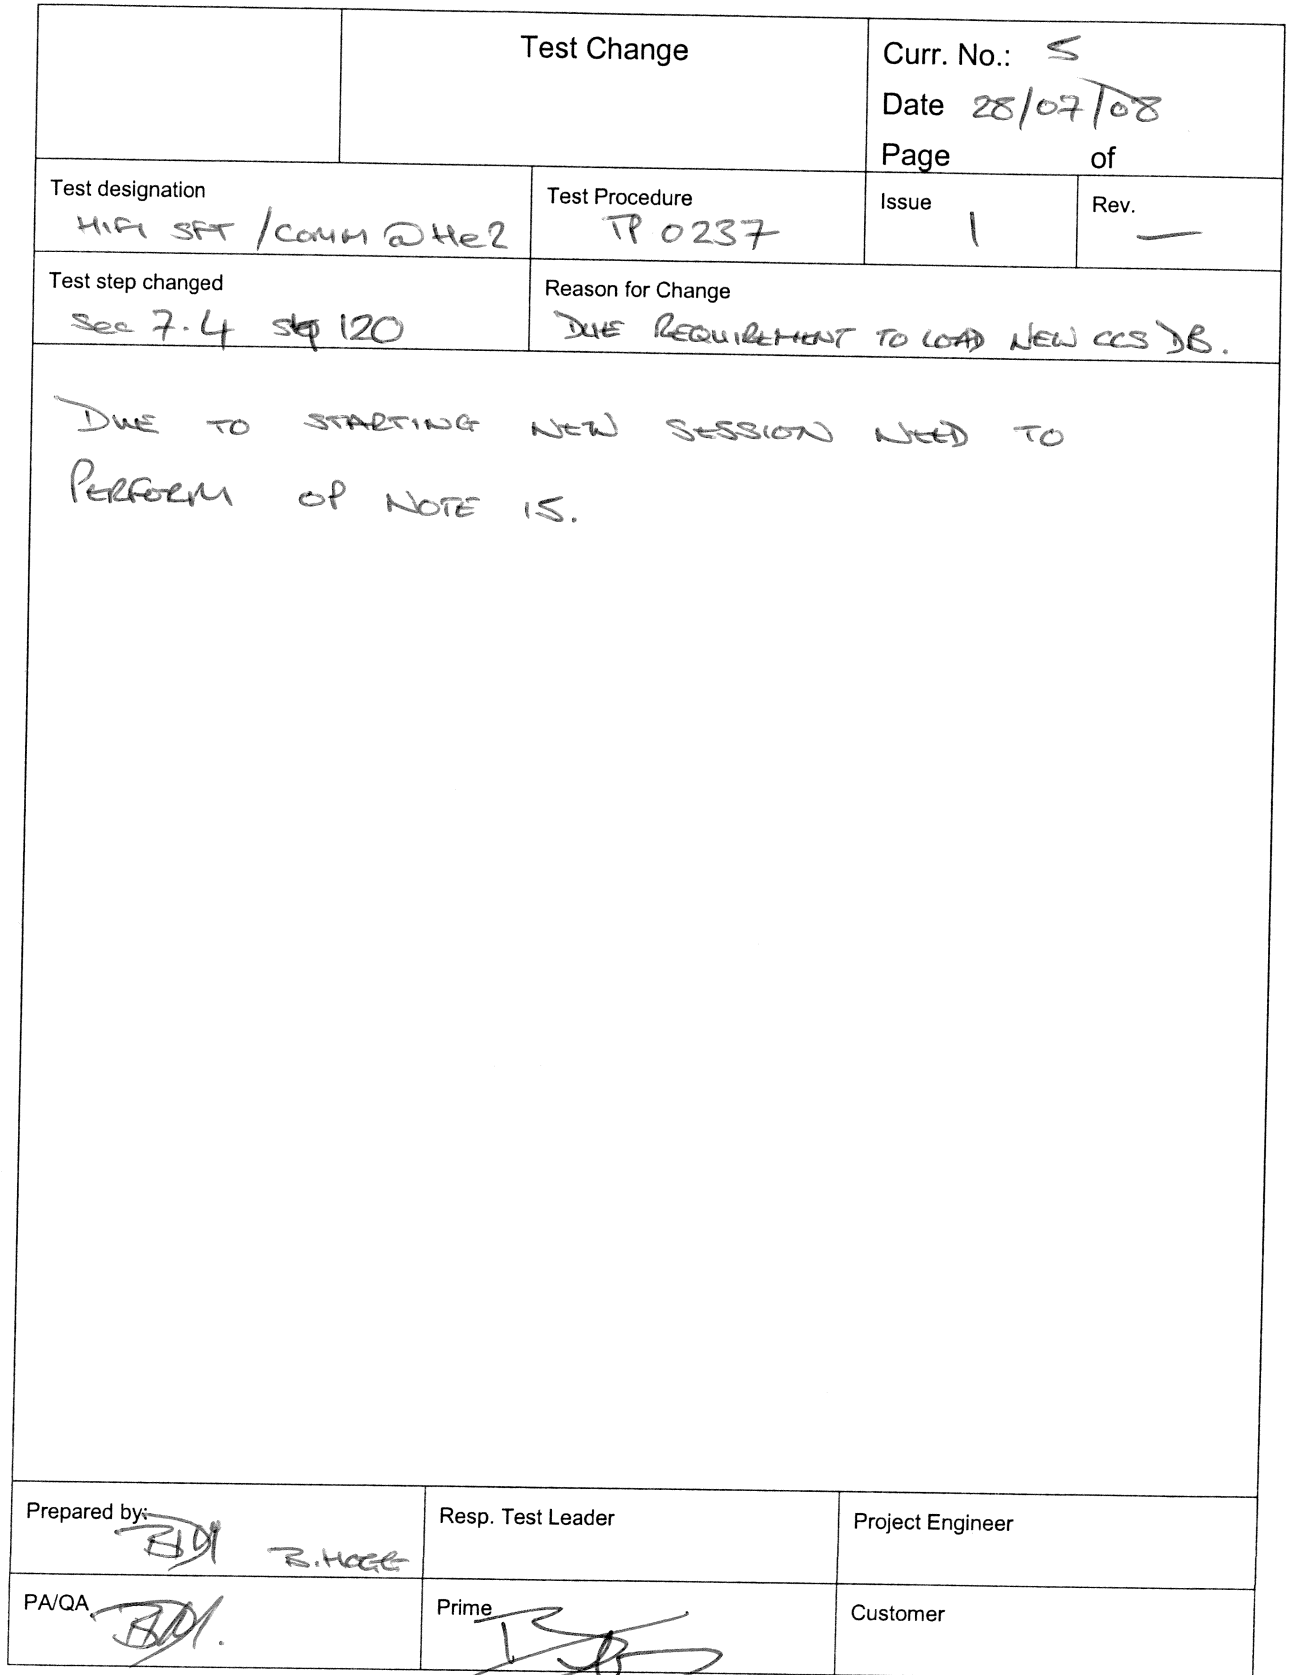 Test Change
Curr. No.: 5
Date 28/07/08
Page of
Test designation
HIFI SFT / COMM @ He2
Test Procedure
TP 0237
Issue
1
Rev.
—
Test step changed
Sec 7.4 step 120
Reason for Change
DUE REQUIREMENT TO LOAD NEW CCS DB.
DUE TO STARTING NEW SESSION NEED TO
PERFORM OP NOTE 15.
Prepared by:
B. HOGG
Resp. Test Leader
Project Engineer
PA/QA
Prime
Customer